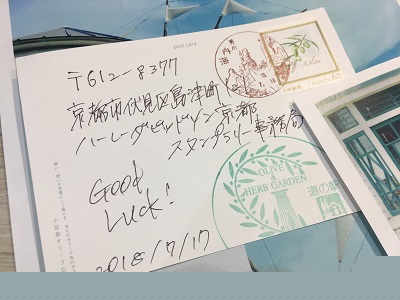 post card
〒612-8377
京都市伏見区島津町
ハーレーダビッドソン京都
スタンプラリー事務局
Good
Luck!
2018/7/17
香川
内海
Olive
OLIVE &
HERB GARDEN
道の駅